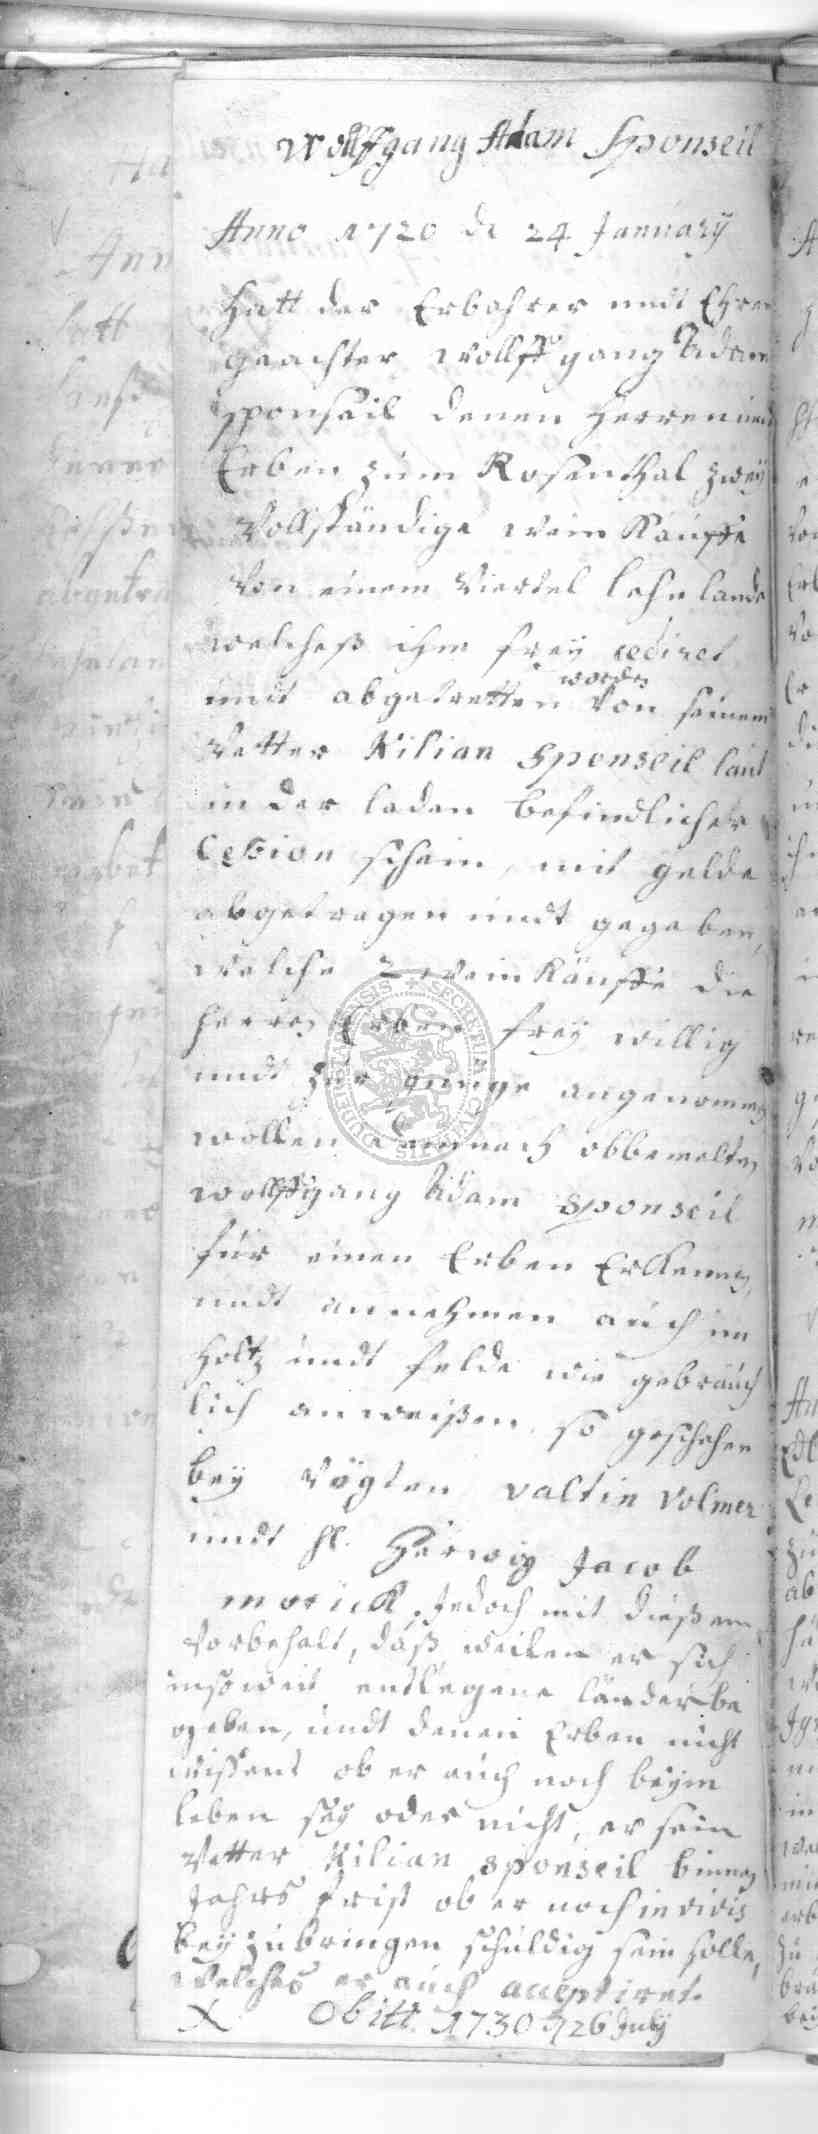 Wolffgang Adam Sponseil
Anno 1720 d 24 January
Hatt der Erbahrer undt Ehren
geachter Wollffgang Adam
Sponseil denen Herren und
Erben zum Rosenthal zwey
Vollständige wein Käuffe
Von einem Viertel lehn lands
welcheß ihm frey cediret
undt abgetretten worden Von seinem
Vetter Kilian Sponseil laut
in der laden befindlicher
Cession schein, mit gelde
abgetragen undt gegeben,
welche 2 wein Käuffe die
Herren Erben frey willig
undt zur gnüge angenommen
wollen demnach obbemelten
wollffgang Adam Sponseil
für einen Erben Erkennen,
undt annehmen auch im
Holtz undt felde wie gebräuch
lich anweißen, so geschehen
bey Vögten Valtin Volmer
undt H. Herwig Jacob
Morick, Jedoch mit dießem
Vorbehalt, daß weilen er sich
in so weit entlegene länder be
geben, undt denen Erben nicht
wißent ob er auch noch beym
leben sey oder nicht, er sein
Vetter Kilian Sponseil binnen
Jahrs frist ob er noch in vivis
beyzubringen schuldig sein solle,
welches er auch acceptiret.
X Obiit 1730 26 July
SECRETUM CIVITATIS DUDERSTADENSIS